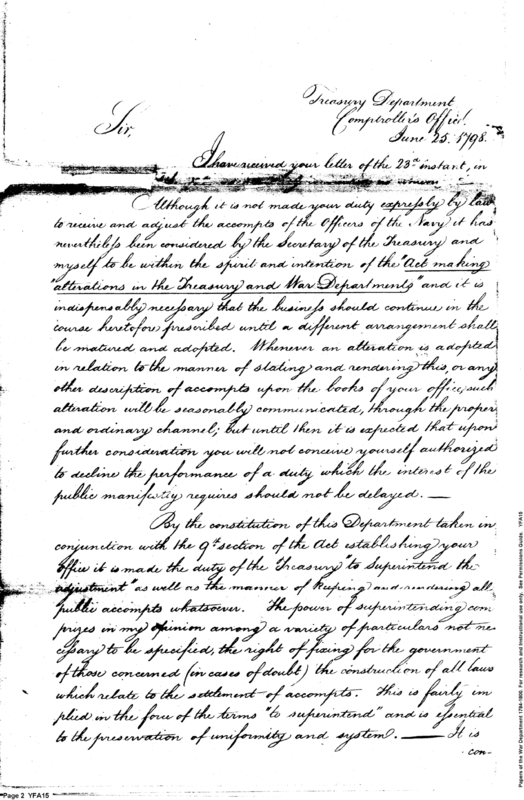 Treasury Department
Comptroller's Office
June 25. 1798.
Sir,
I have received your letter of the 23d instant, in
Although it is not made your duty expressly by law
to receive and adjust the accompts of the Officers of the Navy it has
nevertheless been considered by the Secretary of the Treasury and
myself to be within the spirit and intention of the "Act making
"alterations in the Treasury and War Departments" and it is
indispensably necessary that the business should continue in the
course heretofore prescribed until a different arrangement shall
be matured and adopted. Whenever an alteration is adopted
in relation to the manner of stating and rendering this, or any
other description of accompts upon the books of your office, such
alteration will be seasonably communicated, through the proper
and ordinary channel; but until then it is expected that upon
further consideration you will not conceive yourself authorized
to decline the performance of a duty which the interest of the
public manifestly requires should not be delayed. —
By the constitution of this Department taken in
conjunction with the 9th section of the Act establishing your
office it is made the duty of the Treasury to Superintend the
adjustment" as well as the manner of keeping and rendering all
public accompts whatsoever. The power of superintending com
prizes in my opinion among a variety of particulars not ne
cessary to be specified, the right of fixing for the government
of those concerned (in cases of doubt) the construction of all laws
which relate to the settlement of accompts. This is fairly im
plied in the force of the terms "to superintend" and is essential
to the preservation of uniformity and system. — It is
con-
Page 2 YFA15
Papers of the War Department 1784-1800. For research and instructional use only. See Permissions Guide. YFA15